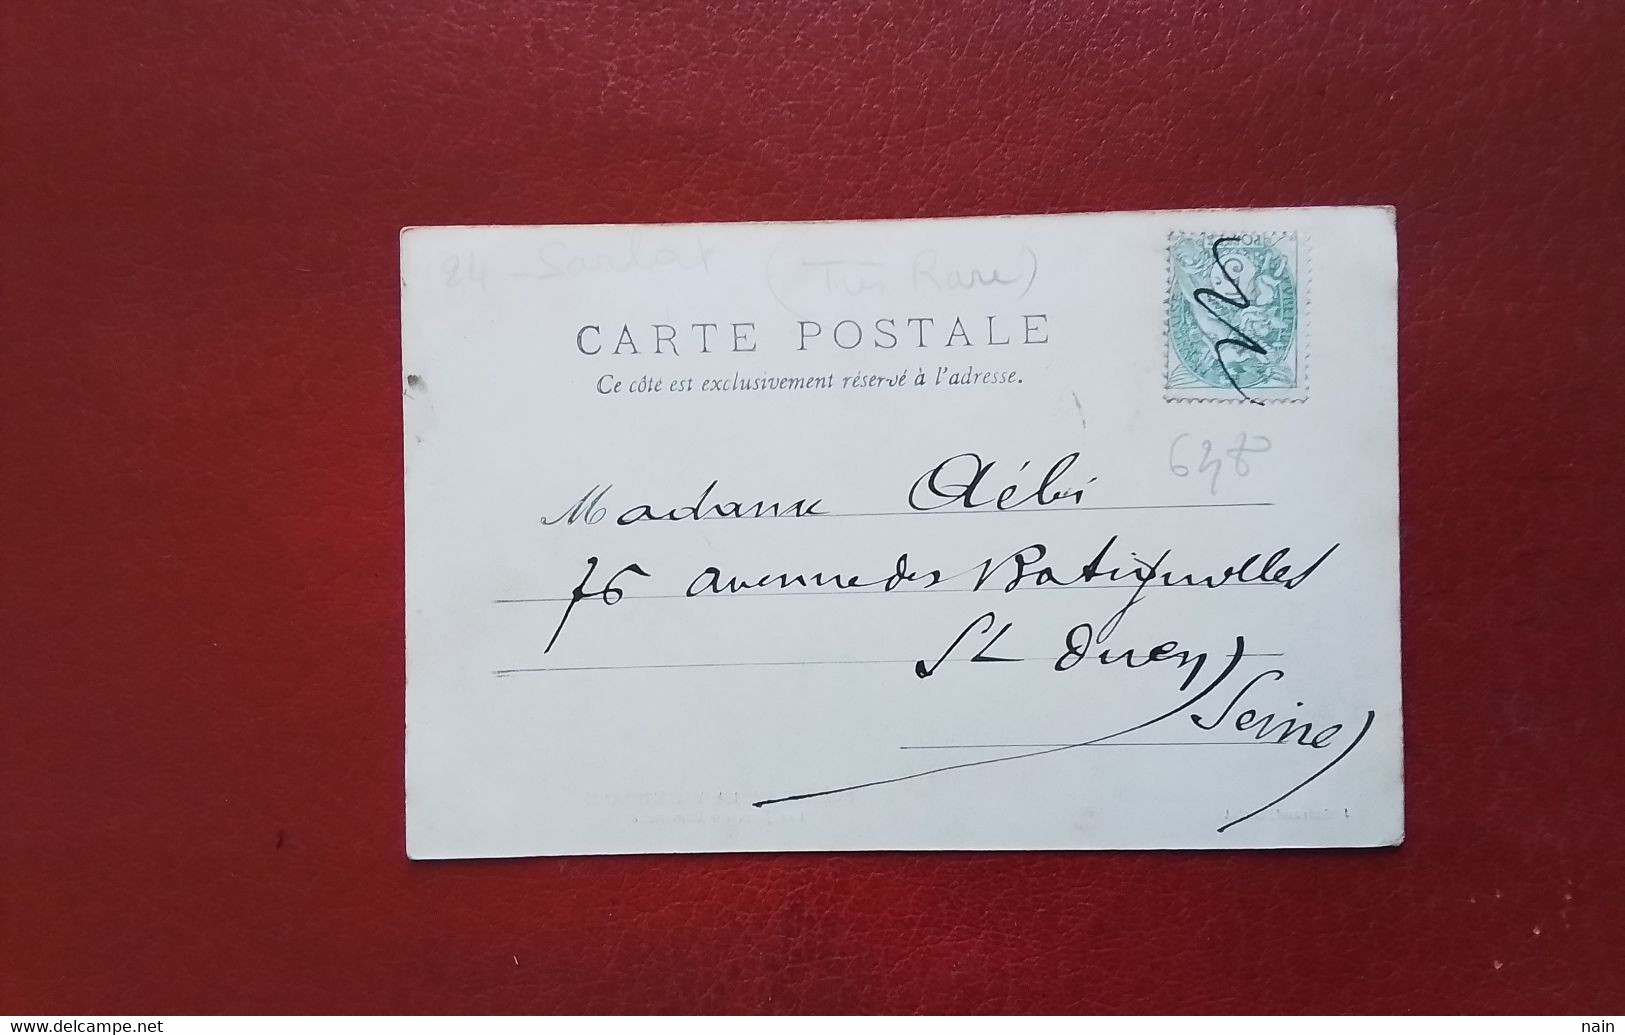 24 Sarlat (Très Rare)
CARTE POSTALE
Ce côté est exclusivement réservé à l'adresse.
Madame Aébi
76 avenue des Batignolles
St Ouen
(Seine)
www.delcampe.net
nain